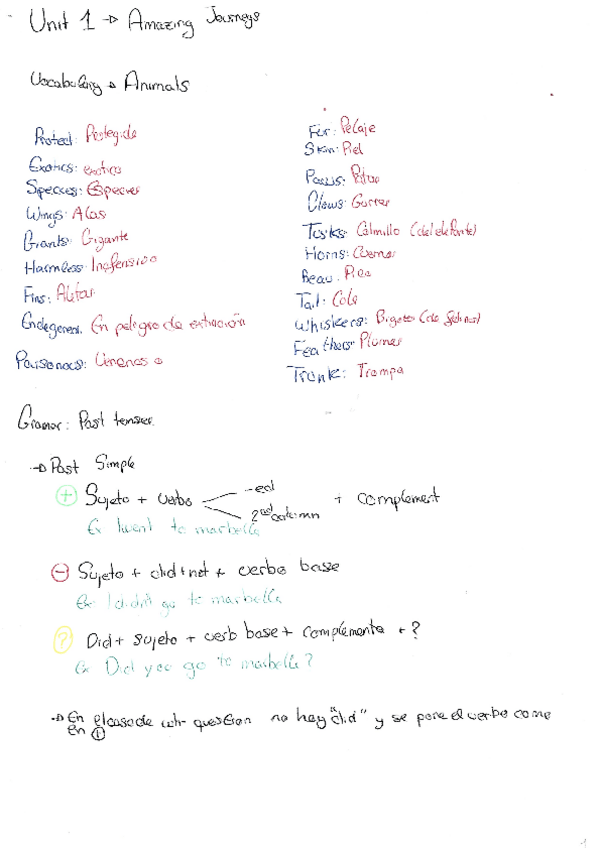 Unit 1 → Amazing Journeys
Vocabulary → Animals
Protect: Protegido
Exotics: exotico
Species: Especies
Wings: Alas
Giants: Gigante
Harmless: Inofensivo
Fins: Aletas
Endegered: En peligro de extinción
Poisonous: Venenoso
Fur: Pelaje
Skin: Piel
Paws: Patas
Claws: Garras
Tusks: Colmillo (del elefante)
Horns: Cuernos
Beau: Pico
Tail: Cola
Whiskers: Bigotes (de felinos)
Feathers: Plumas
Trunk: Trompa
Gramar: Past tenses
→ Past Simple
+ Sujeto + verbo -ed 2nd column + complement
Ex I went to marbella
- Sujeto + did+not + verbo base
Ex I didn't go to marbella
? Did + sujeto + verb base + complemento + ?
Ex Did you go to marbella?
→ En el caso de wh- question no hay "did" y se pone el verbo como
en +